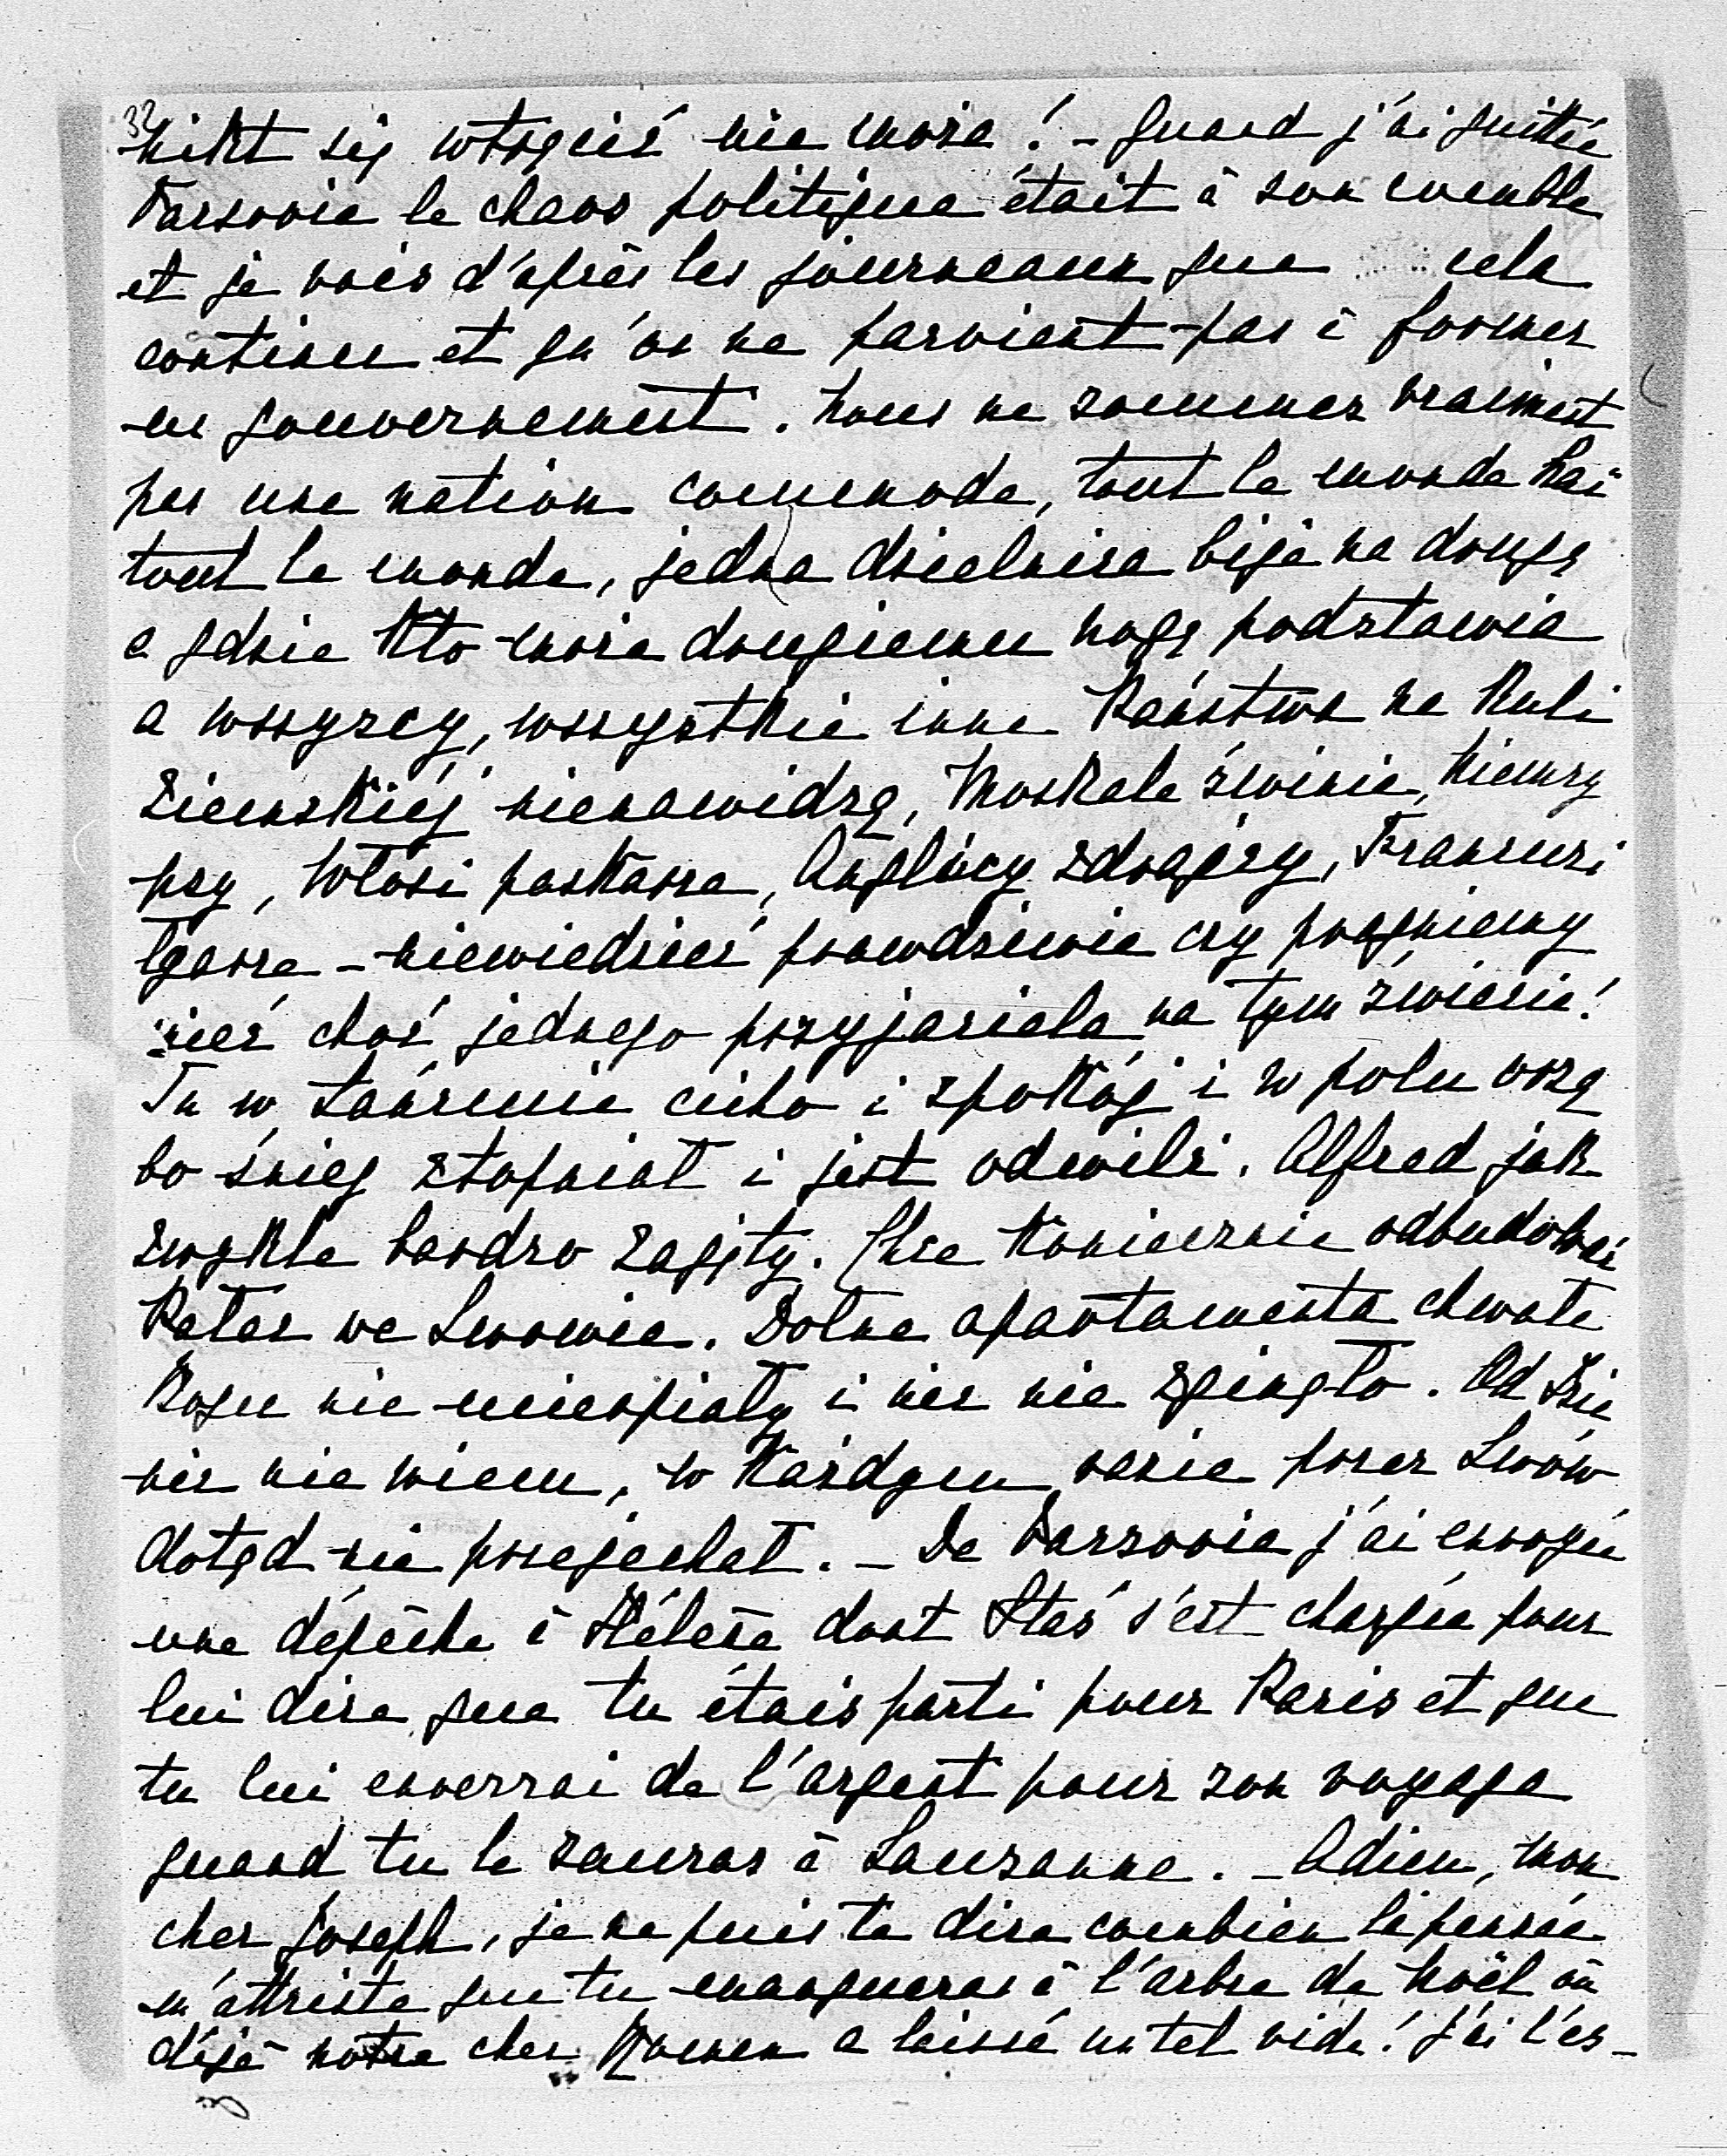 32
nikt się wtrącić nie może! - Quand j'ai quittée
Varsovie le chaos politique était à son comble
et je vois d'après les journeaux que cela
continue et qu'on ne parvient pas à former
un gouvernement. Nous ne sommes vraiment
pas une nation commode, tout le monde haï
tout le monde, jedna dzielnica bije na drugą
a gdzie kto może drugiemu nogę podstawia
a wszyscy, wszystkie inne Państwa na kuli
Ziemskiéj nienawidzą, Moskale świnie, Niemcy
psy, Włosi paskarze, Anglicy zdrajcy, Francuzi
łgarze - niewiedzieć prawdziwie czy pragniemy
mieć choć jednego przyjaciela na tym świecie!
Tu w Łańcucie cicho i spokój i w polu orzą
bo śnieg stopniał i jest odwilż. Alfred jak
zwykle bardzo zajęty. Chce koniecznie odbudować
Pałac we Lwowie. Dolne apartamenta chwała
Bogu nie ucierpiały i nic nie zginęło. Od
nic nie wiem, w każdym razie przez Lwów
dotąd nie przejechał. - De Varsovie j'ai envoyée
une dépêche à Hélène dont Staś s'est chargée pour
lui dire que tu étais parti pour Paris et que
tu lui enverrai de l'argent pour son voyage
quand tu le sauras à Lausanne. - Adieu, mon
cher Joseph, je ne puis te dire combien la pensée
m'attriste que tu manqueras à l'arbre de Noël où
déjà notre cher Roman a laissé un tel vide! J'ai l'es-